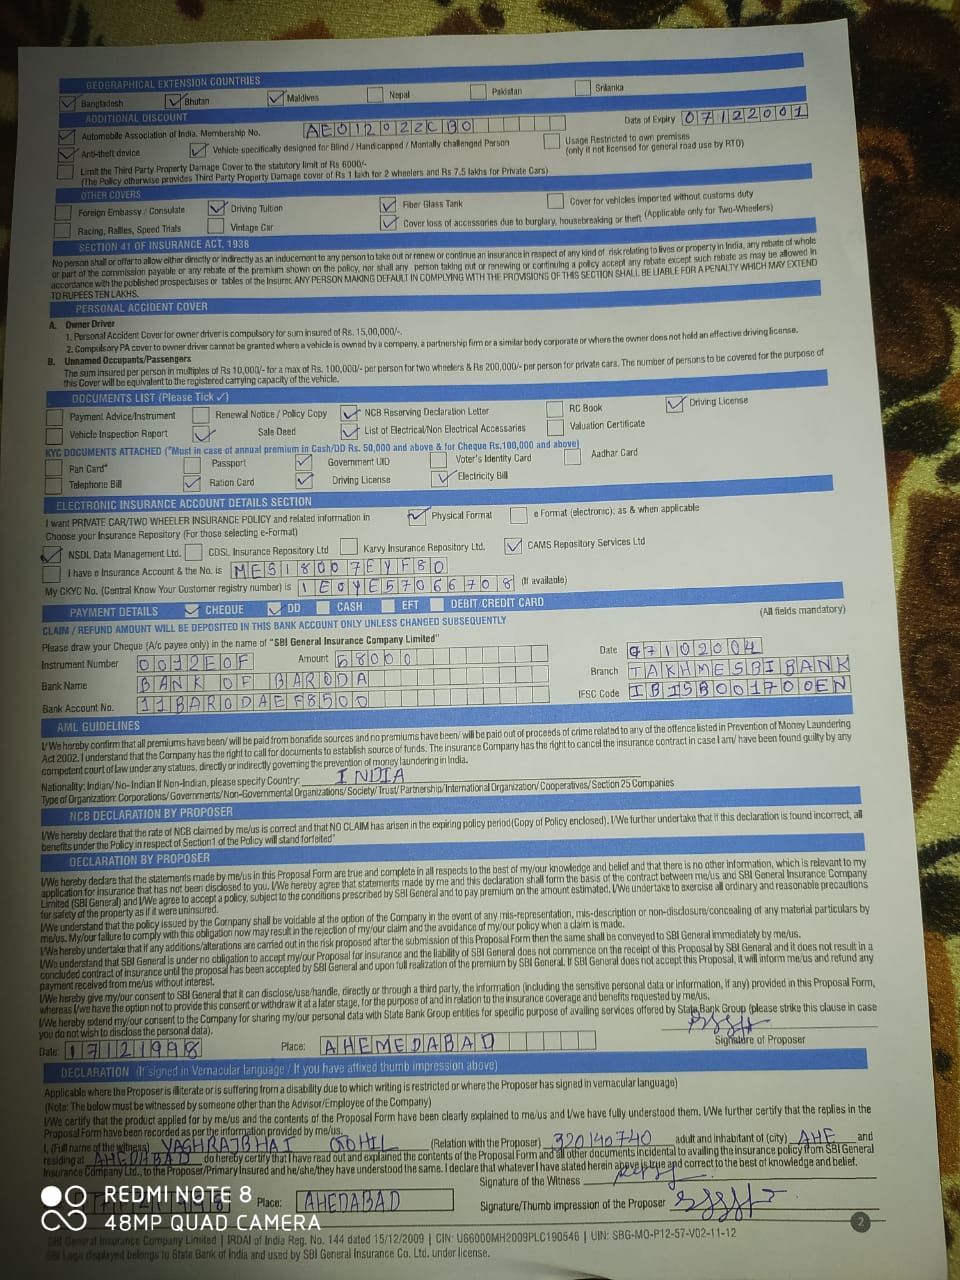 GEOGRAPHICAL EXTENSION COUNTRIES
Bangladesh Bhutan Maldives Nepal Pakistan Srilanka
ADDITIONAL DISCOUNT
Automobile Association of India, Membership No. AE012022CB0 Date of Expiry 07122001
Anti-theft device Vehicle specifically designed for Blind / Handicapped / Mentally challenged Person Usage Restricted to own premises
(only if not licensed for general road use by RTO)
Limit the Third Party Property Damage Cover to the statutory limit of Rs 6000/-
(The Policy otherwise provides Third Party Property Damage cover of Rs 1 lakh for 2 wheelers and Rs 7.5 lakhs for Private Cars)
OTHER COVERS
Foreign Embassy / Consulate Driving Tuition Fiber Glass Tank Cover for vehicles imported without customs duty
Racing, Rallies, Speed Trials Vintage Car Cover loss of accessories due to burglary, housebreaking or theft (Applicable only for Two-Wheelers)
SECTION 41 OF INSURANCE ACT, 1938
No person shall or offer to allow either directly or indirectly as an inducement to any person to take out or renew or continue an insurance in respect of any kind of risk relating to lives or property in India, any rebate of whole
or part of the commission payable or any rebate of the premium shown on the policy, nor shall any person taking out or renewing or continuing a policy accept any rebate except such rebate as may be allowed in
accordance with the published prospectuses or tables of the Insurer. ANY PERSON MAKING DEFAULT IN COMPLYING WITH THE PROVISIONS OF THIS SECTION SHALL BE LIABLE FOR A PENALTY WHICH MAY EXTEND
TO RUPEES TEN LAKHS.
PERSONAL ACCIDENT COVER
A. Owner Driver
1. Personal Accident Cover for owner driver is compulsory for sum insured of Rs. 15,00,000/-.
2. Compulsory PA cover to owner driver cannot be granted where a vehicle is owned by a company, a partnership firm or a similar body corporate or where the owner does not hold an effective driving license.
B. Unnamed Occupants/Passengers
The sum insured per person in multiples of Rs 10,000/- for a max of Rs. 100,000/- per person for two wheelers & Rs 200,000/- per person for private cars. The number of persons to be covered for the purpose of
this Cover will be equivalent to the registered carrying capacity of the vehicle.
DOCUMENTS LIST (Please Tick ✓)
Payment Advice/Instrument Renewal Notice / Policy Copy NCB Reserving Declaration Letter RC Book Driving License
Vehicle Inspection Report Sale Deed List of Electrical/Non Electrical Accessories Valuation Certificate
KYC DOCUMENTS ATTACHED (*Must in case of annual premium in Cash/DD Rs. 50,000 and above & for Cheque Rs.100,000 and above)
Pan Card* Passport Government UID Voter's Identity Card Aadhar Card
Telephone Bill Ration Card Driving License Electricity Bill
ELECTRONIC INSURANCE ACCOUNT DETAILS SECTION
I want PRIVATE CAR/TWO WHEELER INSURANCE POLICY and related information in Physical Format e Format (electronic); as & when applicable
Choose your Insurance Repository (For those selecting e-Format)
NSDL Data Management Ltd. CDSL Insurance Repository Ltd Karvy Insurance Repository Ltd. CAMS Repository Services Ltd
I have e Insurance Account & the No. is MES18007EYF80
My CKYC No. (Central Know Your Customer registry number) is 1E0YE57066708 (If available)
PAYMENT DETAILS CHEQUE DD CASH EFT DEBIT/CREDIT CARD (All fields mandatory)
CLAIM / REFUND AMOUNT WILL BE DEPOSITED IN THIS BANK ACCOUNT ONLY UNLESS CHANGED SUBSEQUENTLY
Please draw your Cheque (A/c payee only) in the name of "SBI General Insurance Company Limited"
Instrument Number 0012E0F Amount 58000 Date 07102004
Bank Name BANK OF BARODA Branch TAKHMESBI BANK
Bank Account No. 11BARODAEF8500 IFSC Code IBISB001700EN
AML GUIDELINES
I/We hereby confirm that all premiums have been/ will be paid from bonafide sources and no premiums have been/ will be paid out of proceeds of crime related to any of the offence listed in Prevention of Money Laundering
Act 2002. I understand that the Company has the right to call for documents to establish source of funds. The insurance Company has the right to cancel the insurance contract in case I am/ have been found guilty by any
competent court of law under any statues, directly or indirectly governing the prevention of money laundering in India.
Nationality: Indian/No-Indian If Non-Indian, please specify Country: INDIA
Type of Organization: Corporations/Governments/Non-Governmental Organizations/Society/Trust/Partnership/International Organization/Cooperatives/Section 25 Companies
NCB DECLARATION BY PROPOSER
I/We hereby declare that the rate of NCB claimed by me/us is correct and that NO CLAIM has arisen in the expiring policy period(Copy of Policy enclosed). I/We further undertake that if this declaration is found incorrect, all
benefits under the Policy in respect of Section1 of the Policy will stand forfeited"
DECLARATION BY PROPOSER
I/We hereby declare that the statements made by me/us in this Proposal Form are true and complete in all respects to the best of my/our knowledge and belief and that there is no other information, which is relevant to my
application for insurance that has not been disclosed to you. I/We hereby agree that statements made by me and this declaration shall form the basis of the contract between me/us and SBI General Insurance Company
Limited (SBI General) and I/We agree to accept a policy, subject to the conditions prescribed by SBI General and to pay premium on the amount estimated. I/We undertake to exercise all ordinary and reasonable precautions
for safety of the property as if it were uninsured.
I/We understand that the policy issued by the Company shall be voidable at the option of the Company in the event of any mis-representation, mis-description or non-disclosure/concealing of any material particulars by
me/us. My/our failure to comply with this obligation now may result in the rejection of my/our claim and the avoidance of my/our policy when a claim is made.
I/We hereby undertake that if any additions/alterations are carried out in the risk proposed after the submission of this Proposal Form then the same shall be conveyed to SBI General immediately by me/us.
I/We understand that SBI General is under no obligation to accept my/our Proposal for insurance and the liability of SBI General does not commence on the receipt of this Proposal by SBI General and it does not result in a
concluded contract of insurance until the proposal has been accepted by SBI General and upon full realization of the premium by SBI General. If SBI General does not accept this Proposal, it will inform me/us and refund any
payment received from me/us without interest.
I/We hereby give my/our consent to SBI General that it can disclose/use/handle, directly or through a third party, the information (including the sensitive personal data or information, if any) provided in this Proposal Form,
whereas I/we have the option not to provide this consent or withdraw it at a later stage, for the purpose of and in relation to the insurance coverage and benefits requested by me/us.
I/We hereby extend my/our consent to the Company for sharing my/our personal data with State Bank Group entities for specific purpose of availing services offered by State Bank Group (please strike this clause in case
you do not wish to disclose the personal data).
Signature of Proposer
Date: 17121998 Place: AHEMEDABAD
DECLARATION (If signed in Vernacular language / If you have affixed thumb impression above)
Applicable where the Proposer is illiterate or is suffering from a disability due to which writing is restricted or where the Proposer has signed in vernacular language)
(Note: The below must be witnessed by someone other than the Advisor/Employee of the Company)
I/We certify that the product applied for by me/us and the contents of the Proposal Form have been clearly explained to me/us and I/we have fully understood them. I/We further certify that the replies in the
Proposal Form have been recorded as per the information provided by me/us.
I, (Full name of the witness) VAGHRAJBHAI GOHIL (Relation with the Proposer) 320140740 adult and inhabitant of (city) AHE and
residing at AHEDABAD do hereby certify that I have read out and explained the contents of the Proposal Form and all other documents incidental to availing the insurance policy from SBI General
Insurance Company Ltd., to the Proposer/Primary Insured and he/she/they have understood the same. I declare that whatever I have stated herein above is true and correct to the best of knowledge and belief.
Signature of the Witness
Place: AHEDABAD Signature/Thumb impression of the Proposer
REDMI NOTE 8
48MP QUAD CAMERA
2
SBI General Insurance Company Limited | IRDAI of India Reg. No. 144 dated 15/12/2009 | CIN: U66000MH2009PLC190546 | UIN: SBG-MO-P12-57-V02-11-12
SBI Logo displayed belongs to State Bank of India and used by SBI General Insurance Co. Ltd. under license.